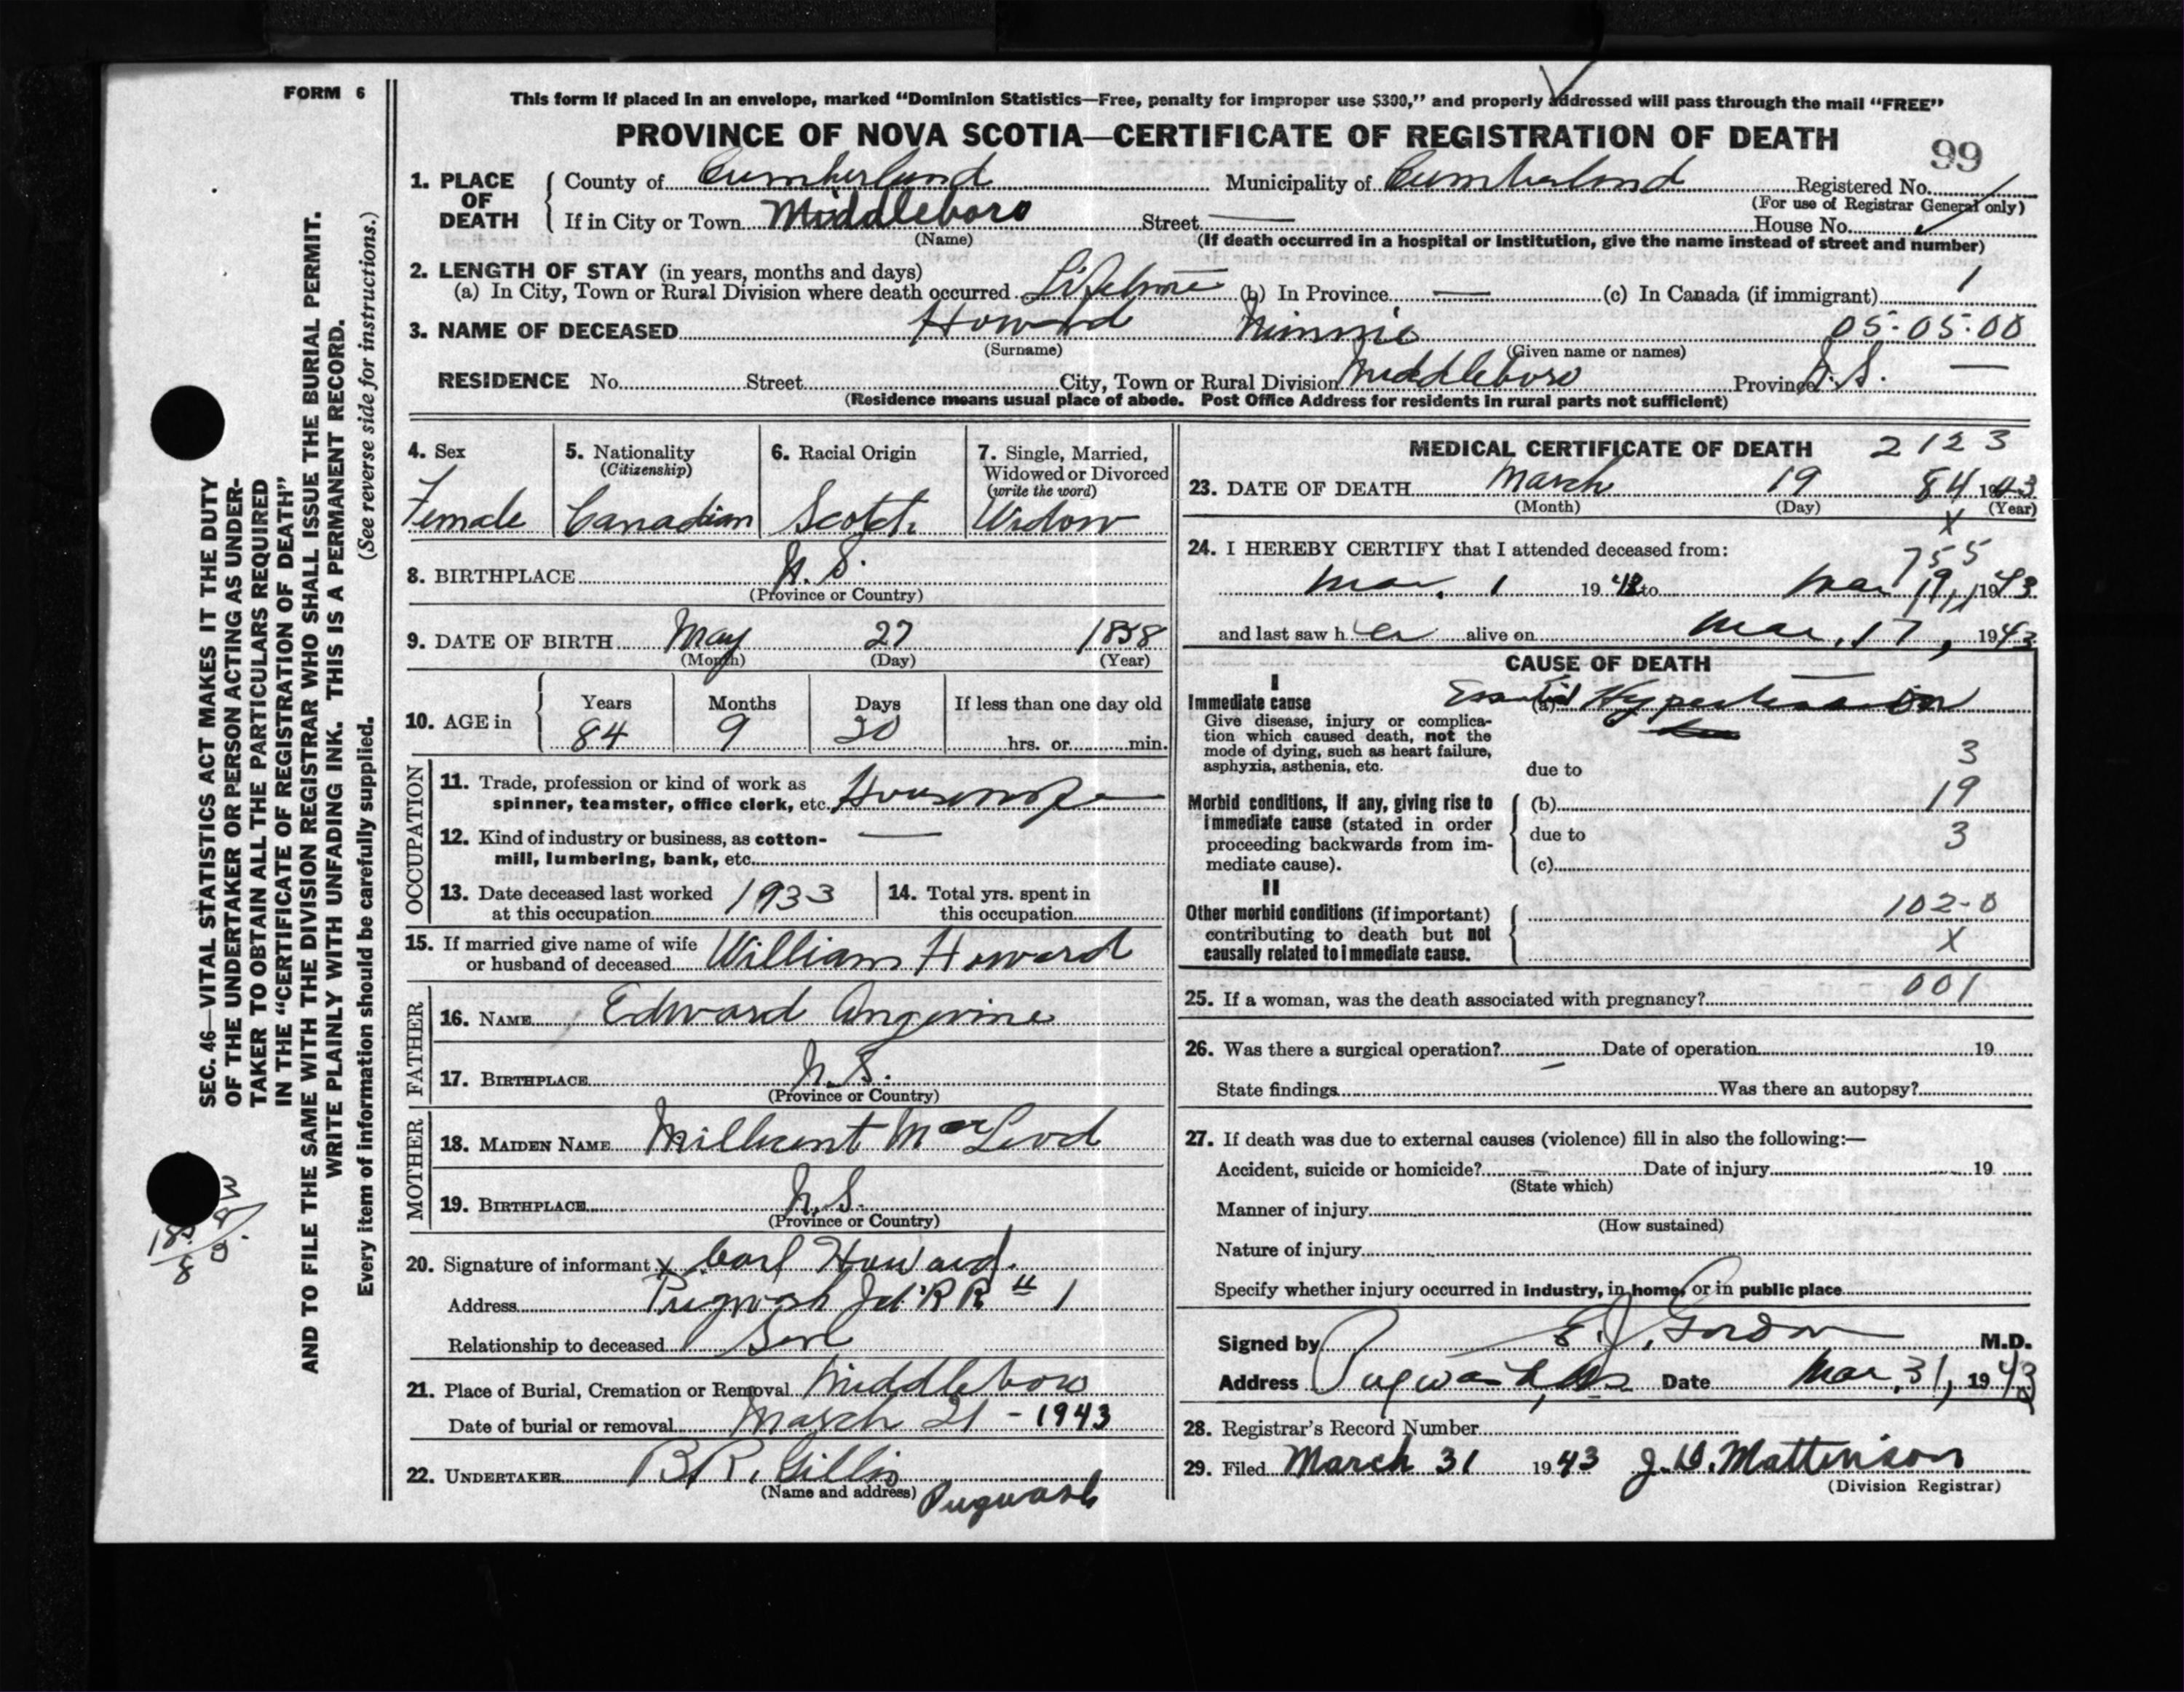 FORM 6
This form if placed in an envelope, marked “Dominion Statistics—Free, penalty for improper use $300,” and properly addressed will pass through the mail “FREE”
PROVINCE OF NOVA SCOTIA—CERTIFICATE OF REGISTRATION OF DEATH
99
1. PLACE OF DEATH County of Cumberland Municipality of Cumberland Registered No.
(For use of Registrar General only)
If in City or Town Middleboro Street — House No.
(Name) (If death occurred in a hospital or institution, give the name instead of street and number)
2. LENGTH OF STAY (in years, months and days) 1
(a) In City, Town or Rural Division where death occurred Lifetime (b) In Province — (c) In Canada (if immigrant)
3. NAME OF DECEASED Howard Minnie 05-05-00
(Surname) (Given name or names)
RESIDENCE No. Street City, Town or Rural Division Middleboro Province N.S. —
(Residence means usual place of abode. Post Office Address for residents in rural parts not sufficient)
4. Sex
Female
5. Nationality
(Citizenship)
Canadian
6. Racial Origin
Scotch
7. Single, Married,
Widowed or Divorced
(write the word)
Widow
8. BIRTHPLACE N.S.
(Province or Country)
9. DATE OF BIRTH May 27 1858
(Month) (Day) (Year)
10. AGE in Years Months Days If less than one day old
84 9 20 hrs. or min.
OCCUPATION
11. Trade, profession or kind of work as
spinner, teamster, office clerk, etc. Housewife
12. Kind of industry or business, as cotton-
mill, lumbering, bank, etc. —
13. Date deceased last worked
at this occupation 1933
14. Total yrs. spent in
this occupation
15. If married give name of wife
or husband of deceased William Howard
FATHER
16. NAME Edward Angevine
17. BIRTHPLACE N.S.
(Province or Country)
MOTHER
18. MAIDEN NAME Millicent MacLeod
19. BIRTHPLACE N.S.
(Province or Country)
20. Signature of informant x Carl Howard.
Address Pugwash Jct R R # 1
Relationship to deceased Son
21. Place of Burial, Cremation or Removal Middleboro
Date of burial or removal March 21 - 1943
22. UNDERTAKER B.R. Gillis
(Name and address) Pugwash
MEDICAL CERTIFICATE OF DEATH 2123
23. DATE OF DEATH March 19 84 1943
(Month) (Day) (Year)
X
24. I HEREBY CERTIFY that I attended deceased from: 755
Mar. 1 1943 to Mar 19, 1943
and last saw her alive on Mar. 17, 1943
CAUSE OF DEATH
I
Immediate cause (a) Essential Hypertension
Give disease, injury or complica-
tion which caused death, not the
mode of dying, such as heart failure,
asphyxia, asthenia, etc. due to 3
Morbid conditions, if any, giving rise to (b) 19
immediate cause (stated in order
proceeding backwards from im- due to 3
mediate cause). (c)
II
Other morbid conditions (if important) 102-0
contributing to death but not
causally related to immediate cause. X
25. If a woman, was the death associated with pregnancy? 001
26. Was there a surgical operation? — Date of operation 19
State findings Was there an autopsy?
27. If death was due to external causes (violence) fill in also the following:—
Accident, suicide or homicide? — Date of injury 19
(State which)
Manner of injury
(How sustained)
Nature of injury
Specify whether injury occurred in industry, in home, or in public place
Signed by E. J. Gordon M.D.
Address Pugwash, NS Date Mar. 31, 1943
28. Registrar's Record Number
29. Filed March 31 1943 J. D. Mattinson
(Division Registrar)
SEC. 46—VITAL STATISTICS ACT MAKES IT THE DUTY
OF THE UNDERTAKER OR PERSON ACTING AS UNDER-
TAKER TO OBTAIN ALL THE PARTICULARS REQUIRED
IN THE “CERTIFICATE OF REGISTRATION OF DEATH”
AND TO FILE THE SAME WITH THE DIVISION REGISTRAR WHO SHALL ISSUE THE BURIAL PERMIT.
WRITE PLAINLY WITH UNFADING INK. THIS IS A PERMANENT RECORD.
Every item of information should be carefully supplied. (See reverse side for instructions.)